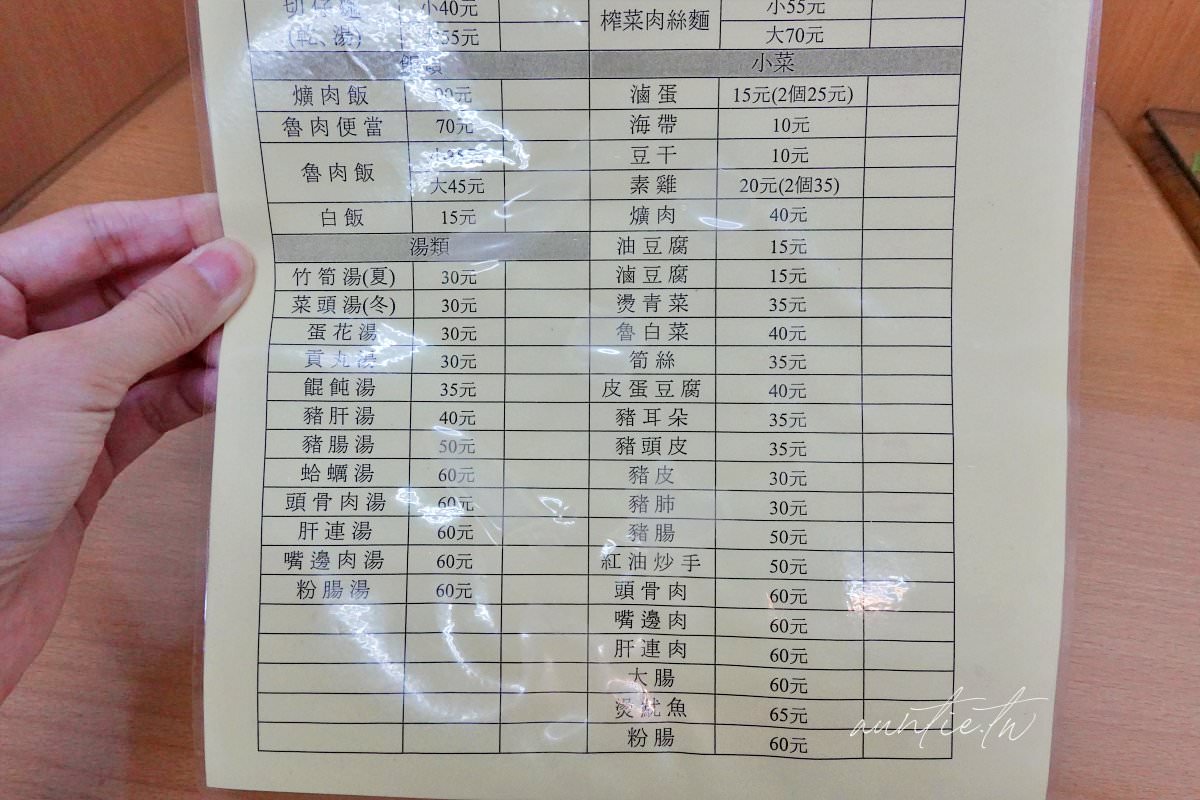 切仔麵 小40元
(乾、湯) 大55元
榨菜肉絲麵 小55元
大70元
飯類
爌肉飯
魯肉便當 70元
魯肉飯 小35元
大45元
白飯 15元
湯類
竹筍湯(夏) 30元
菜頭湯(冬) 30元
蛋花湯 30元
貢丸湯 30元
餛飩湯 35元
豬肝湯 40元
豬腸湯 50元
蛤蠣湯 60元
頭骨肉湯 60元
肝連湯 60元
嘴邊肉湯 60元
粉腸湯 60元
小菜
滷蛋 15元(2個25元)
海帶 10元
豆干 10元
素雞 20元(2個35)
爌肉 40元
油豆腐 15元
滷豆腐 15元
燙青菜 35元
魯白菜 40元
筍絲 35元
皮蛋豆腐 40元
豬耳朵 35元
豬頭皮 35元
豬皮 30元
豬肺 30元
豬腸 50元
紅油炒手 50元
頭骨肉 60元
嘴邊肉 60元
肝連肉 60元
大腸 60元
燙魷魚 65元
粉腸 60元
auntie.tw